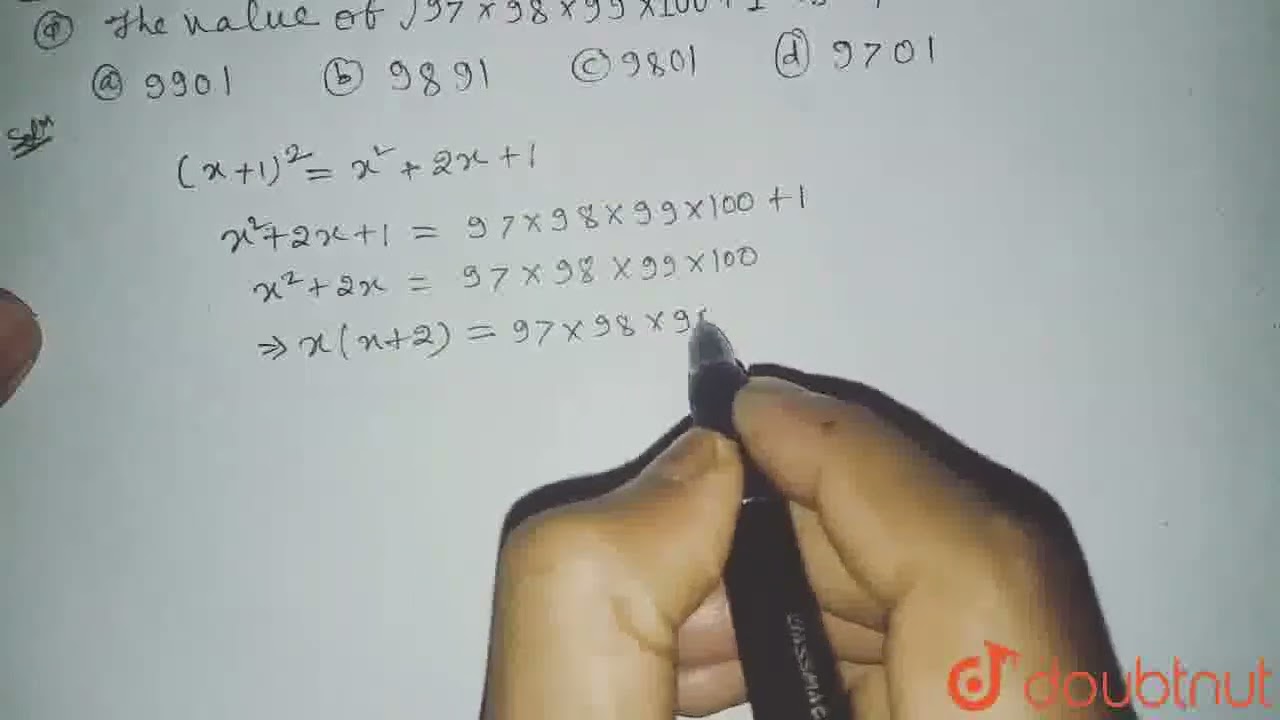 Q The value of √97×98×99×100+1
(a) 9901 (b) 9891 (c) 9801 (d) 9701
Solⁿ
(x+1)² = x² + 2x + 1
x²+2x+1 = 97×98×99×100+1
x²+2x = 97×98×99×100
⇒ x(x+2) = 97×98×9
doubtnut